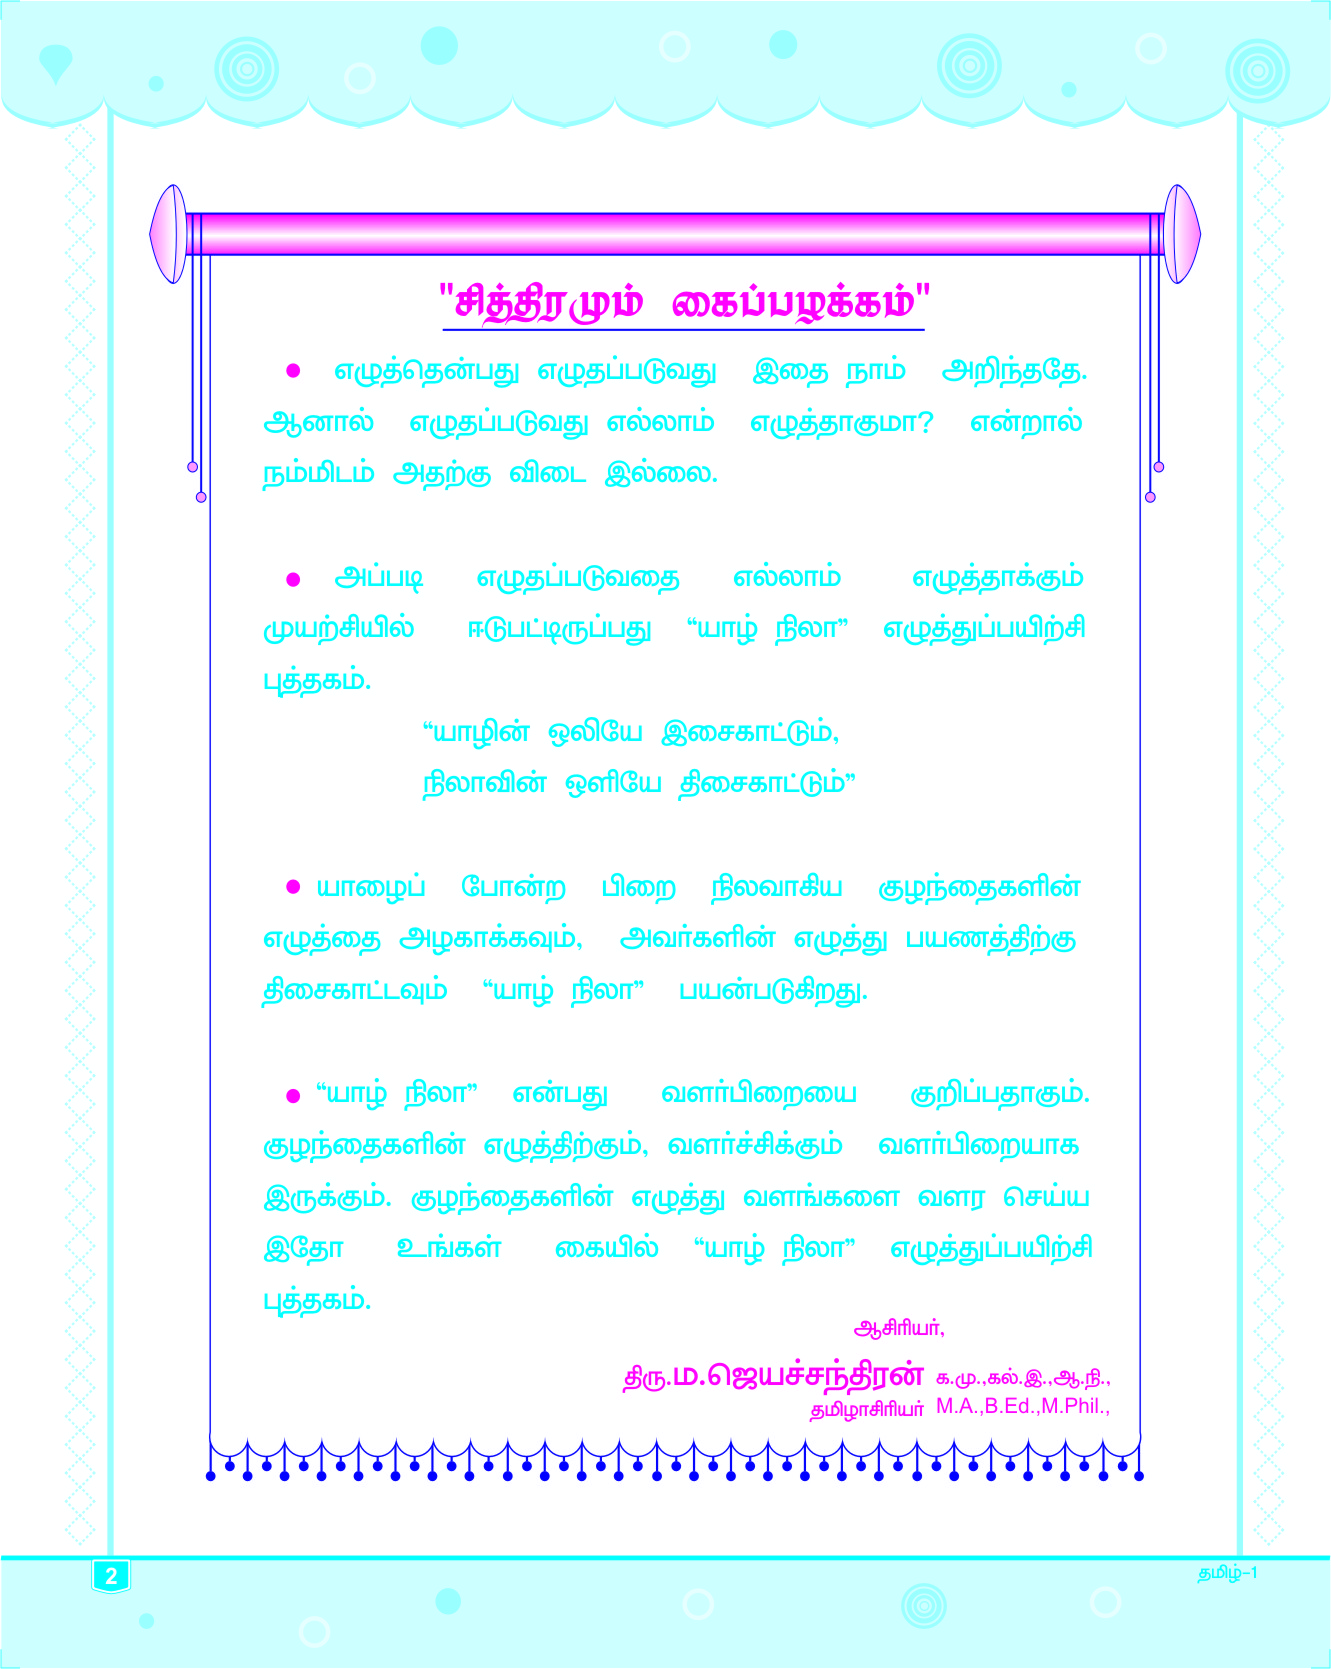 "சித்திரமும் கைப்பழக்கம்"
● எழுத்தென்பது எழுதப்படுவது இதை நாம் அறிந்ததே.
ஆனால் எழுதப்படுவது எல்லாம் எழுத்தாகுமா? என்றால்
நம்மிடம் அதற்கு விடை இல்லை.
● அப்படி எழுதப்படுவதை எல்லாம் எழுத்தாக்கும்
முயற்சியில் ஈடுபட்டிருப்பது “யாழ் நிலா” எழுத்துப்பயிற்சி
புத்தகம்.
“யாழின் ஒலியே இசைகாட்டும்,
நிலாவின் ஒளியே திசைகாட்டும்”
● யாழைப் போன்ற பிறை நிலவாகிய குழந்தைகளின்
எழுத்தை அழகாக்கவும், அவர்களின் எழுத்து பயணத்திற்கு
திசைகாட்டவும் “யாழ் நிலா” பயன்படுகிறது.
● “யாழ் நிலா” என்பது வளர்பிறையை குறிப்பதாகும்.
குழந்தைகளின் எழுத்திற்கும், வளர்ச்சிக்கும் வளர்பிறையாக
இருக்கும். குழந்தைகளின் எழுத்து வளங்களை வளர செய்ய
இதோ உங்கள் கையில் “யாழ் நிலா” எழுத்துப்பயிற்சி
புத்தகம்.
ஆசிரியர்,
திரு.ம.ஜெயச்சந்திரன் க.மு.,கல்.இ.,ஆ.நி.,
தமிழாசிரியர் M.A.,B.Ed.,M.Phil.,
2
தமிழ்-1